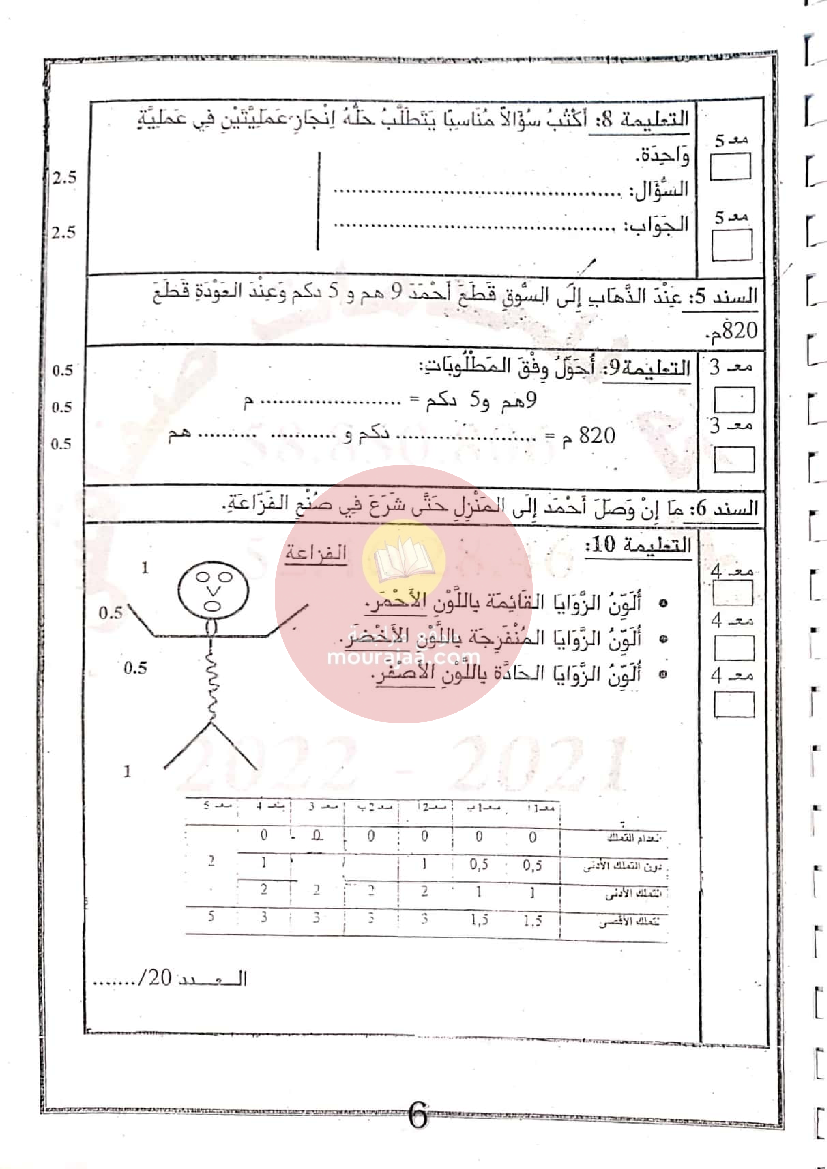 التعليمة 8: أَكْتُبُ سُؤَالاً مُنَاسِبًا يَتَطَلَّبُ حَلُّهُ إِنْجَازَ عَمَلِيَّتَيْنِ فِي عَمَلِيَّةٍ
وَاحِدَة.
السُّؤَال: ........................................
الجَوَاب: ........................................
معـ 5
معـ 5
2.5
2.5
السند 5: عِنْدَ الذَّهَابِ إِلَى السُّوقِ قَطَعَ أَحْمَدَ 9 هم و 5 دكم وَعِنْدَ العَوْدَةِ قَطَعَ
820م.
التعليمة9: أُحَوِّلُ وِفْقَ المَطْلُوبَاتِ:
9هم و5 دكم = ..................... م
820 م = ..................... دكم و .......... ......... هم
معـ 3
معـ 3
0.5
0.5
0.5
السند 6: مَا إِنْ وَصَلَ أَحْمَد إِلَى المَنْزِلِ حَتَّى شَرَعَ فِي صُنْعِ الفَزَّاعَةِ.
التعليمة 10:
الفزاعة
• أُلَوِّنُ الزَّوَايَا القَائِمَة بِاللَّوْنِ الأَحْمَر.
• أُلَوِّنُ الزَّوَايَا المُنْفَرِجَة بِاللَّوْنِ الأَخْضَر.
• أُلَوِّنُ الزَّوَايَا الحَادَّة بِاللَّوْنِ الأَصْفَر.
معـ 4
معـ 4
معـ 4
1
0.5
0.5
1
mourajaa.com
2022 - 2021
معـ1أ معـ1ب معـ2أ معـ2ب معـ 3 معـ 4 معـ 5
انعدام التملك 0 0 0 0 0 0
دون التملك الأدنى 0,5 0,5 1 1 2
التملك الأدنى 1 1 2 2 2 2
التملك الأقصى 1,5 1,5 3 3 3 3 5
العـــدد 20/.......
6